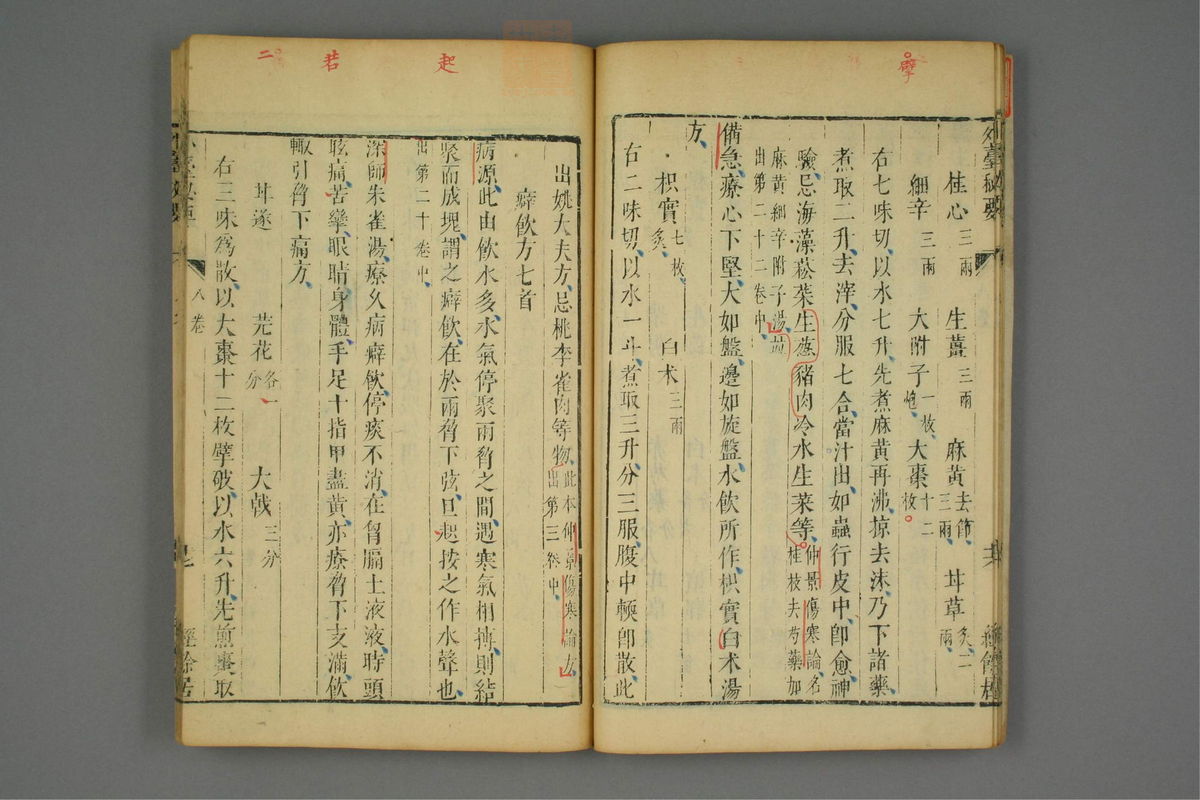 擘
外臺秘要
桂心三兩 生薑三兩 麻黃去節三兩 甘草炙二兩
細辛三兩 大附子一枚炮 大棗十二枚
右七味切以水七升先煮麻黃再沸掠去沫乃下諸藥
煮取二升去滓分服七合當汁出如蟲行皮中卽愈神
驗忌海藻菘菜生蔥豬肉冷水生菜等仲景傷寒論名桂枝去芍藥加
麻黃細辛附子湯出第二十二卷中
備急療心下堅大如盤邊如旋盤水飲所作枳實白朮湯
方
枳實七枚炙 白朮三兩
右二味切以水一斗煮取三升分三服腹中輭卽散此
起
若
二
出姚大夫方忌桃李雀肉等物此本仲景傷寒論方出第三卷中
癖飲方七首
病源此由飲水多水氣停聚兩脅之間遇寒氣相搏則結
聚而成塊謂之癖飲在於兩脅下弦亘起按之作水聲也
出第二十卷中
深師朱雀湯療久病癖飲停痰不消在胷膈上液液時頭
眩痛苦攣眼睛身體手足十指甲盡黃亦療脅下支滿飲
輒引脅下痛方
甘遂 芫花各一分 大戟三分
右三味爲散以大棗十二枚擘破以水六升先煎棗取
八卷
經餘居